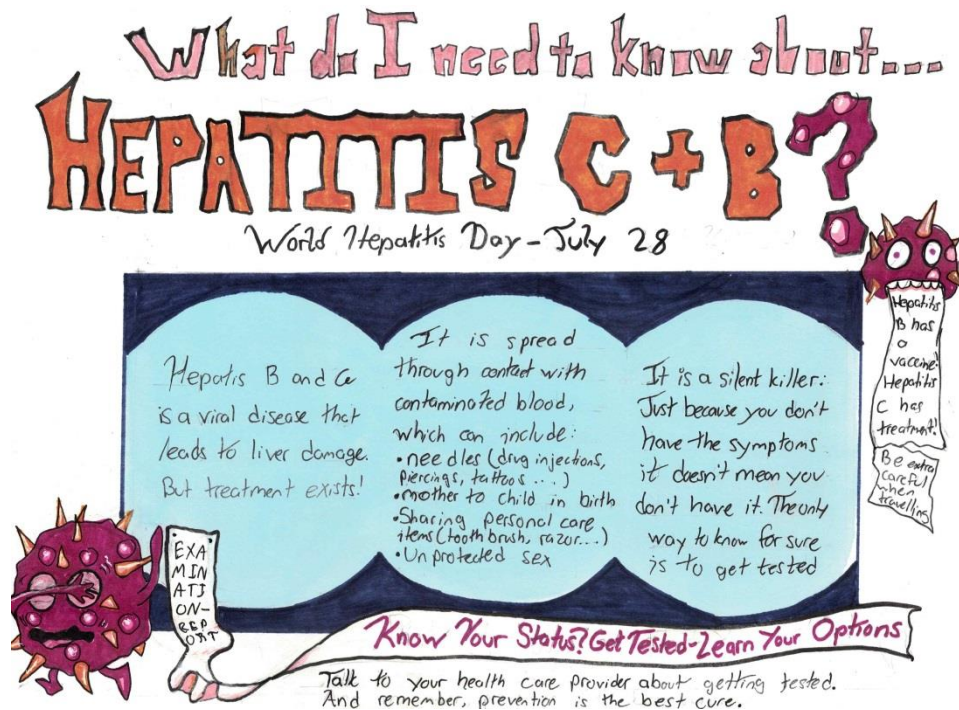 What do I need to know about...
HEPATITIS C + B?
World Hepatitis Day - July 28
Hepatis B and C
is a viral disease that
leads to liver damage.
But treatment exists!
It is spread
through contact with
contaminated blood,
which can include:
• needles (drug injections,
piercings, tattoos ...)
• mother to child in birth
• Sharing personal care
items (tooth brush, razor...)
• Unprotected sex
It is a silent killer:
Just because you don't
have the symptoms
it doesn't mean you
don't have it. The only
way to know for sure
is to get tested
Hepatitis
B has
a
vaccine!
Hepatitis
C has
treatment!
Be extra
careful
when
travelling
EXA
MIN
ATI
ON-
REP
ORT
Know Your Status? Get Tested - Learn Your Options
Talk to your health care provider about getting tested.
And remember, prevention is the best cure.